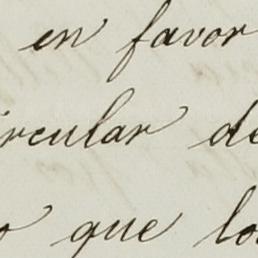 en favor
ircular de
o que los